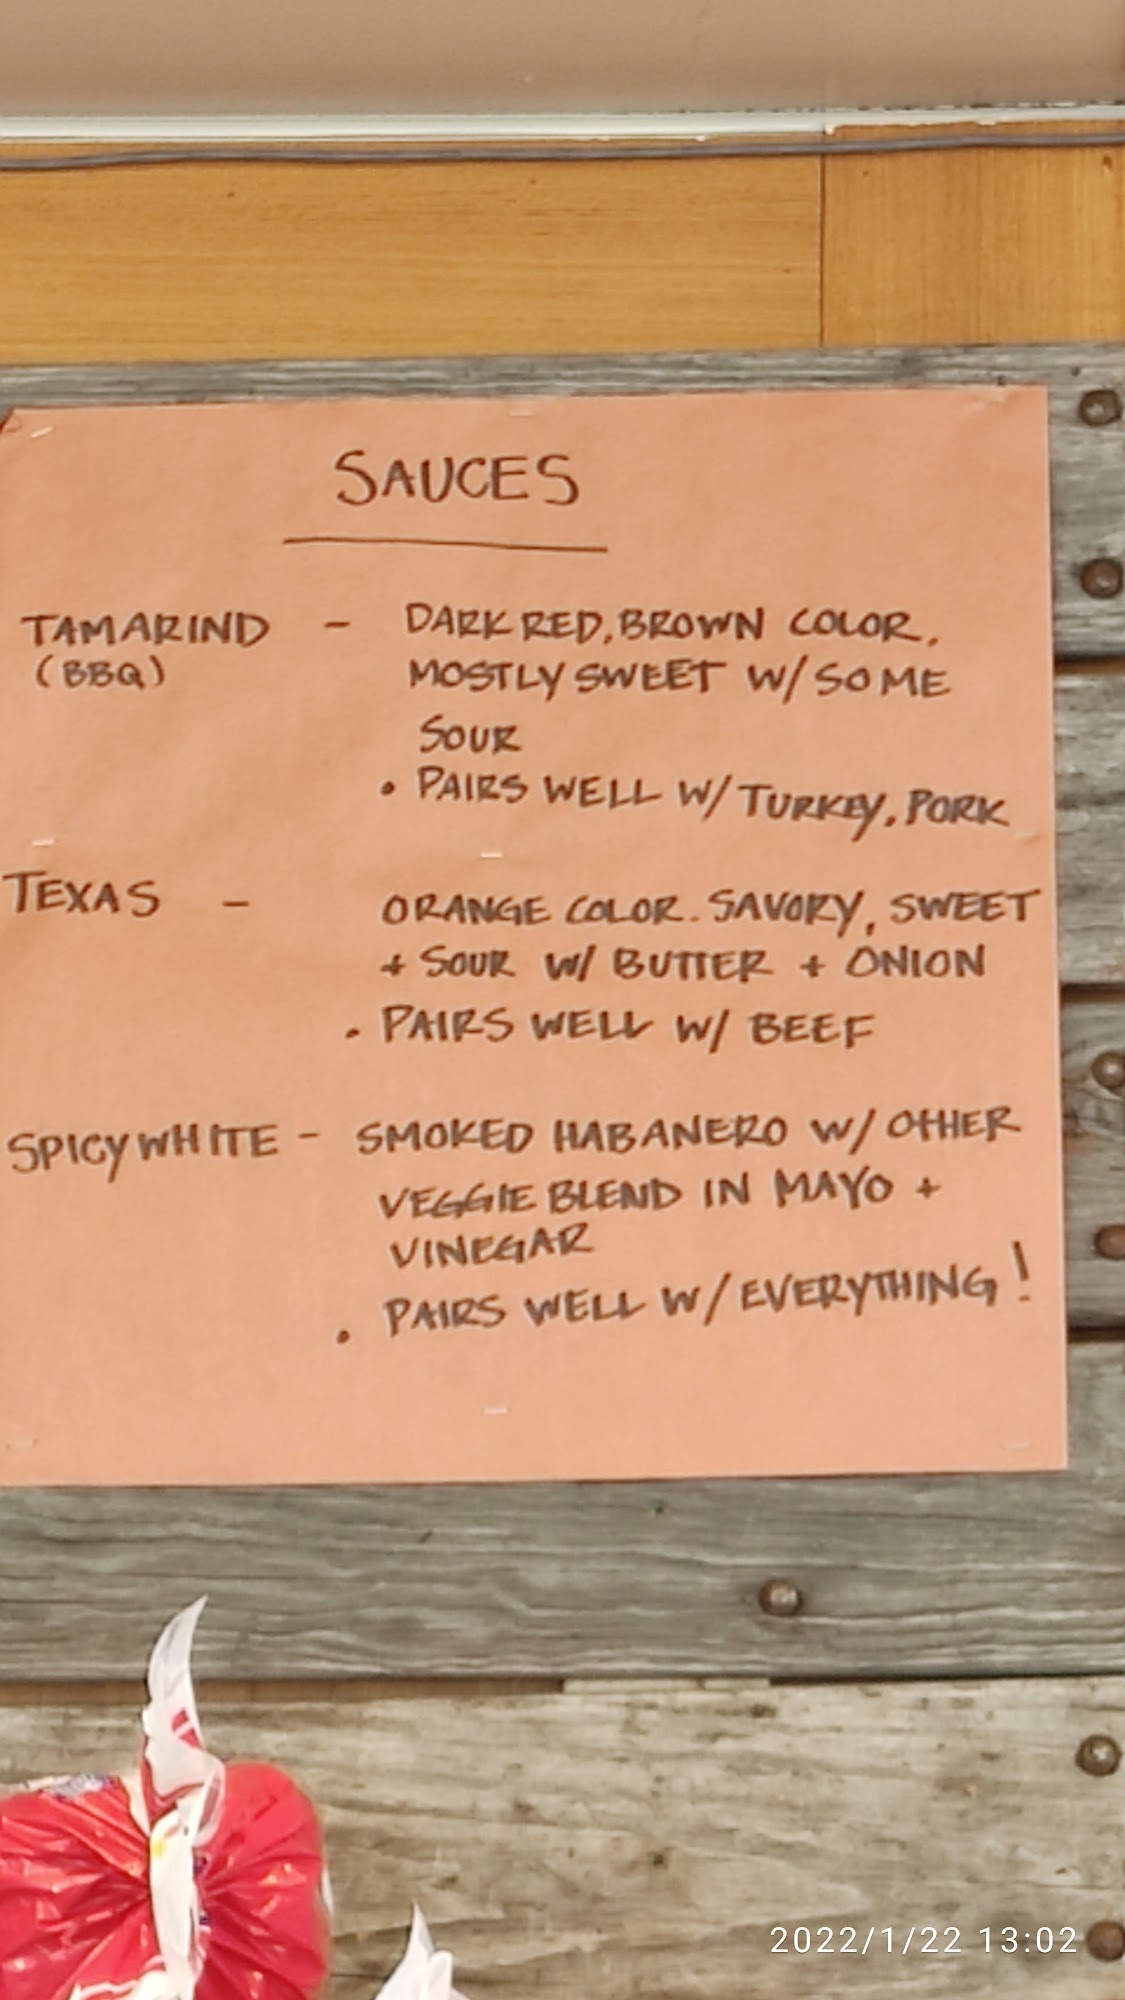 SAUCES
TAMARIND - DARK RED, BROWN COLOR.
(BBQ) MOSTLY SWEET W/ SOME
SOUR
• PAIRS WELL W/ TURKEY, PORK
TEXAS - ORANGE COLOR. SAVORY, SWEET
+ SOUR W/ BUTTER + ONION
• PAIRS WELL W/ BEEF
SPICY WHITE - SMOKED HABANERO W/ OTHER
VEGGIE BLEND IN MAYO +
VINEGAR
• PAIRS WELL W/ EVERYTHING!
2022/1/22 13:02